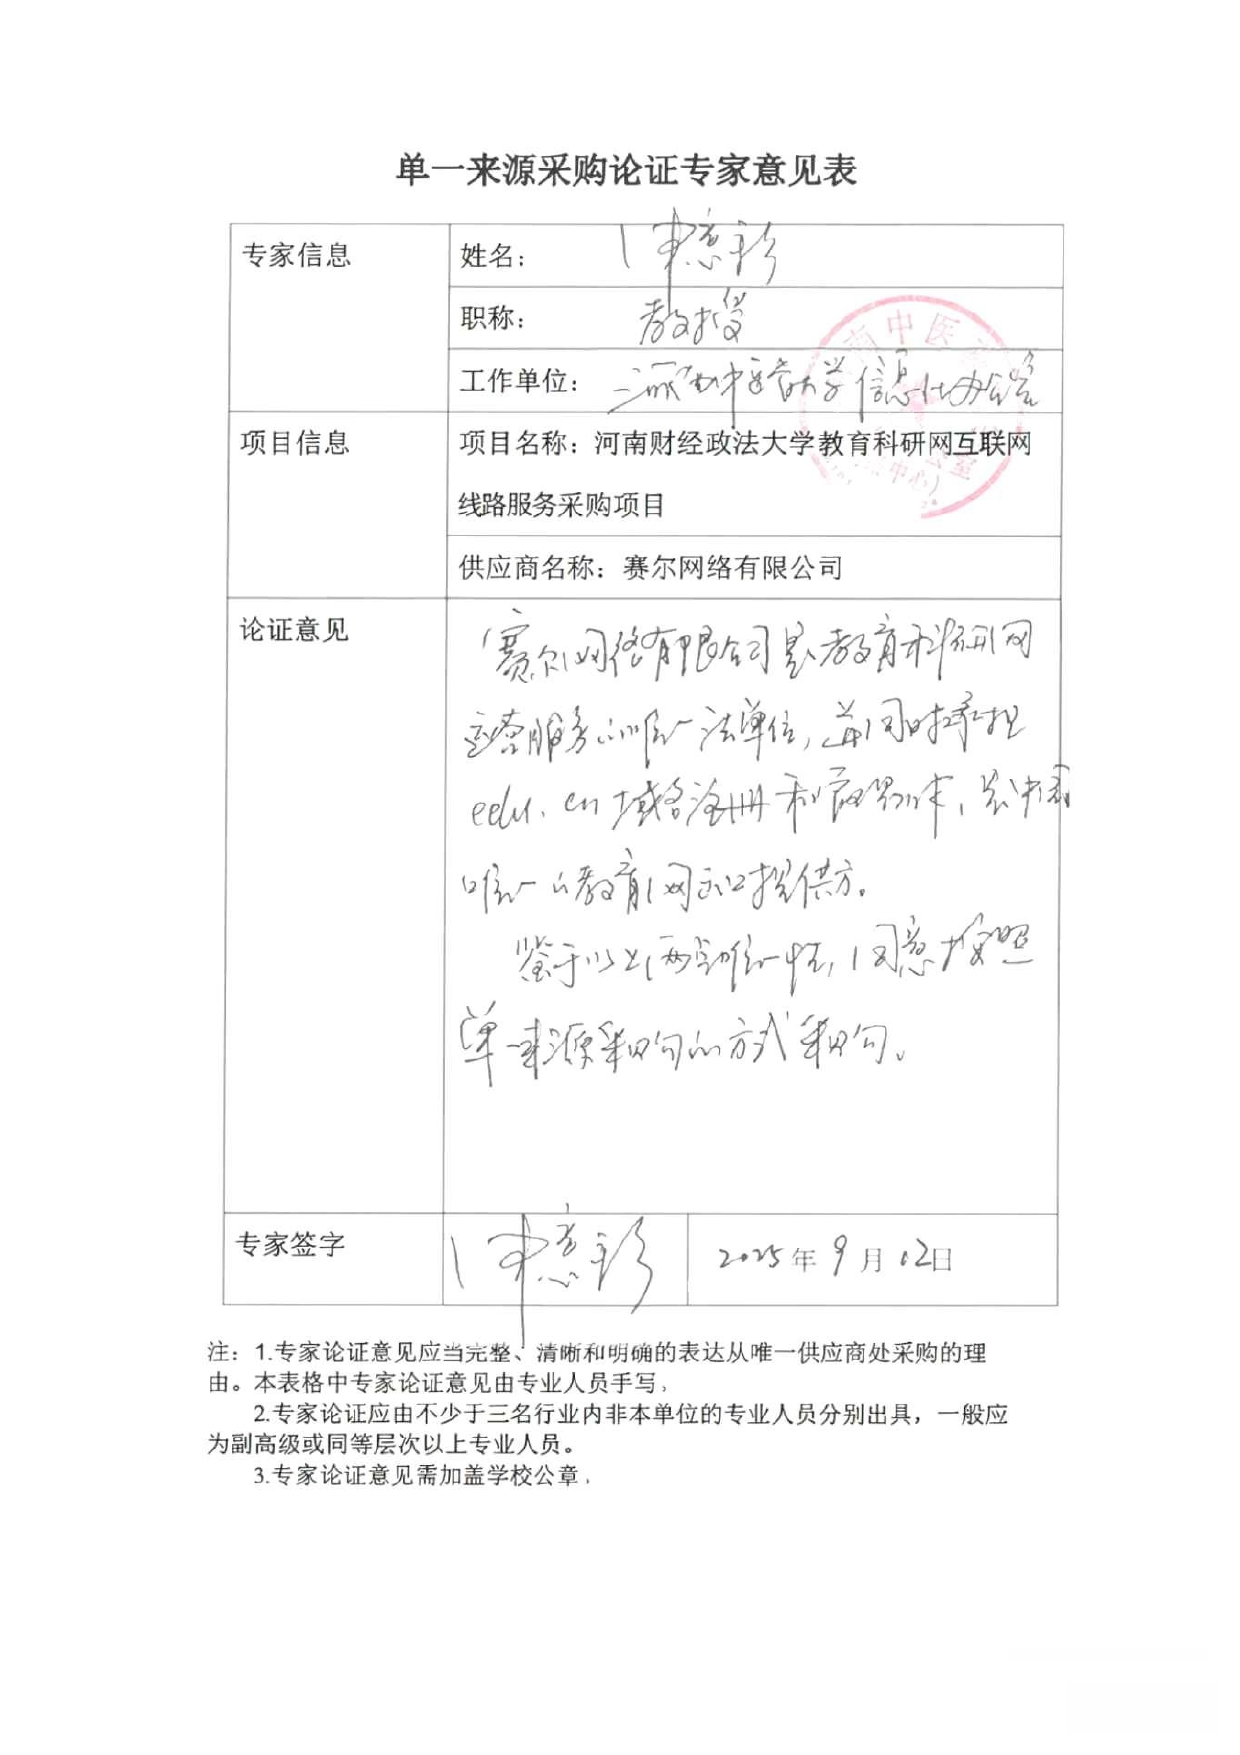 单一来源采购论证专家意见表
专家信息
姓名：
职称： 教授
工作单位： 河南中医药大学信息化办公室
项目信息
项目名称：河南财经政法大学教育科研网互联网
线路服务采购项目
供应商名称：赛尔网络有限公司
论证意见
赛尔网络有限公司是教育科研网
运营服务的唯一法单位，并同时承担
edu.cn域名注册和管理 是中国
唯一的教育网 提供方。
鉴于以上两 唯一性，同意按照
单一来源采购的方式采购。
专家签字
2025年9月12日
注：1.专家论证意见应当完整、清晰和明确的表达从唯一供应商处采购的理
由。本表格中专家论证意见由专业人员手写，
2.专家论证应由不少于三名行业内非本单位的专业人员分别出具，一般应
为副高级或同等层次以上专业人员。
3.专家论证意见需加盖学校公章，